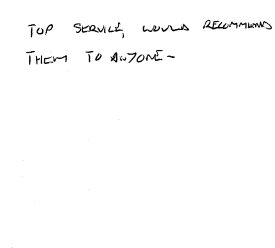 TOP SERVICE, WOULD RECOMMEND
THEM TO ANYONE -